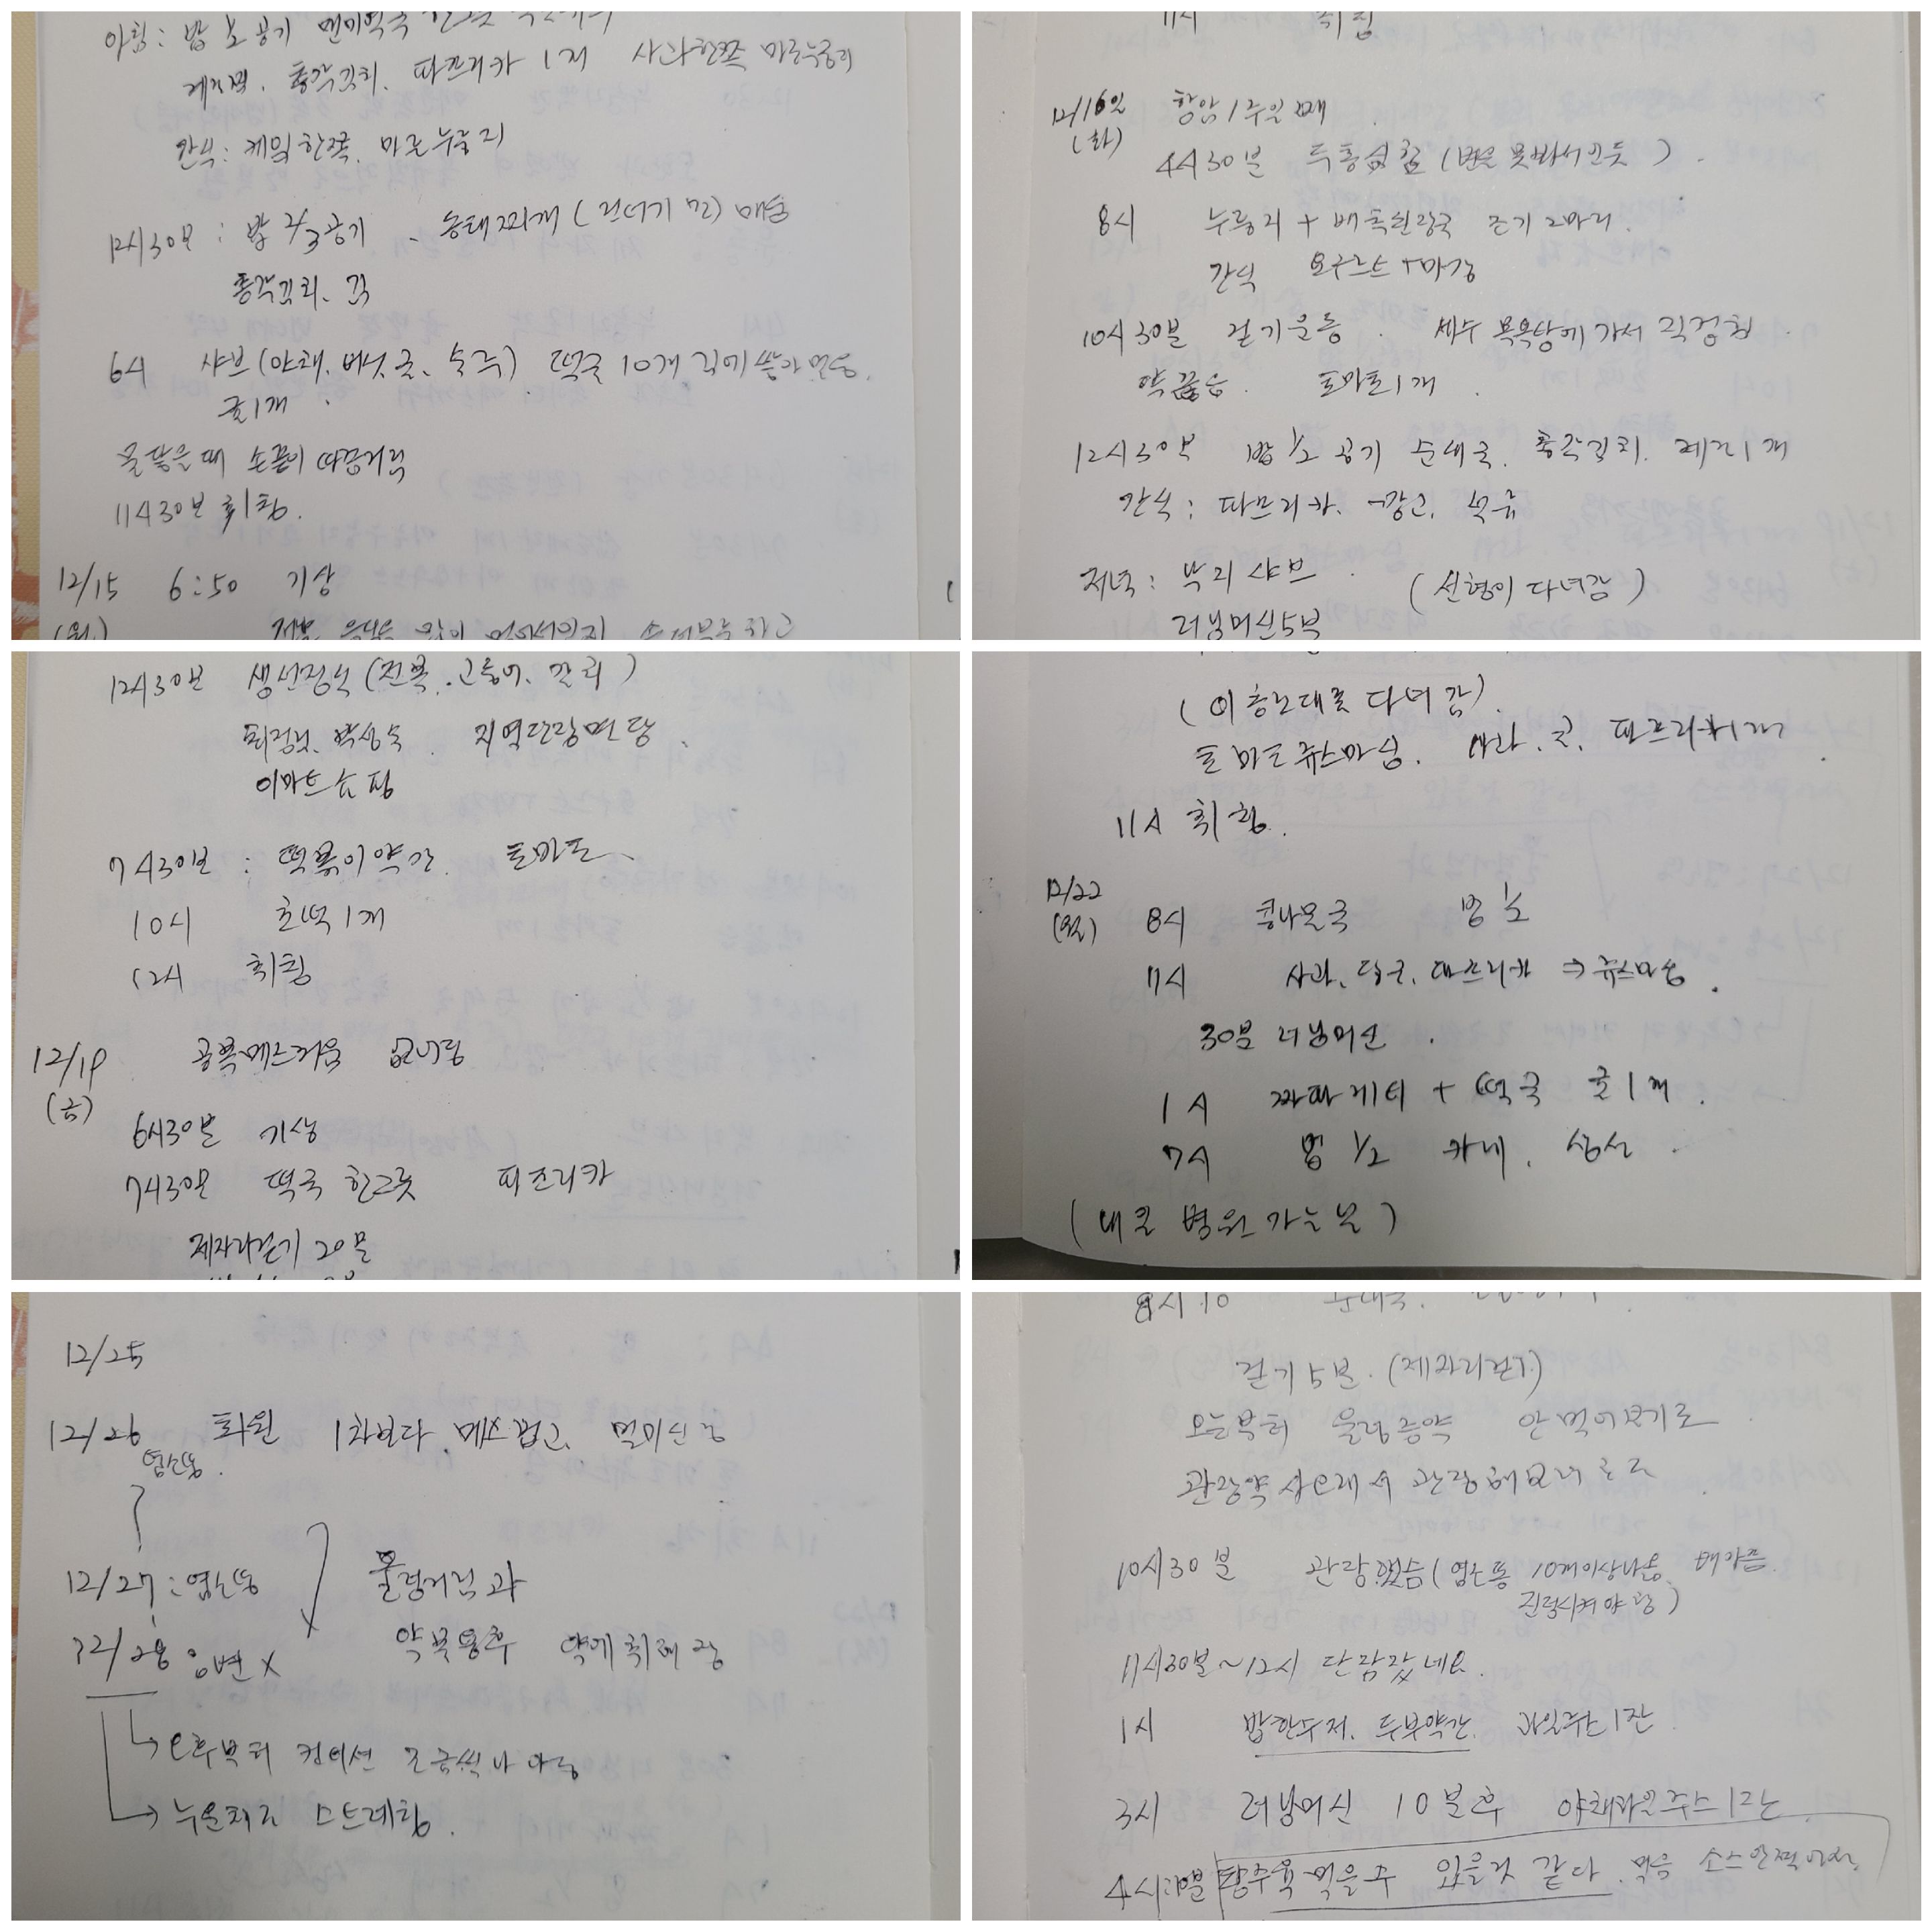 아침: 밥 ½ 공기
총각김치. 파프리카 1개 사과한쪽 마른누룽지
간식: 케익한쪽. 마른누룽지
12시30분 : 밥 2/3공기 . 동태찌개 (건더기만) 매움
총각김치. 김
6시 샤브(야채. 버섯. 굴. 숙주) 떡국 10개
귤1개
물 닿을때 손끝이 따끔거림
11시30분 취침.
12/15 6:50 기상
(월)
11시 취침
12/16일 항암 1주일째
(화)
4시30분 두통심함 (변을 못봐서인듯)
8시 누룽지 + 배추된장국 조기 2마리
간식 요구르트 +마감
10시30분 걷기운동 . 세수 목욕탕에 가서 직접함
약끊음. 토마토1개
12시30분 밥 ½ 공기 순대국. 총각김치. 계란1개
간식 : 파프리카. 망고. 석류
저녁 : 샤브 (선형이 다녀감)
러닝머신5분
12시30분 생선정식 (전복. 고등어. 갈치)
박성숙. 지역난방면담
이마트 쇼핑
7시30분 : 떡볶이약간. 토마토
10시 호떡1개
12시 취침
12/19 공복메스꺼움
(금)
6시30분 기상
7시30분 떡국 한그릇 파프리카
제자리걷기 20분
다녀감).
토마토쥬스마심. 사과. 귤. 파프리카1개
11시 취침.
12/22
(월) 8시 콩나물국 밥 ½
7시 사과. 당근. 파프리카 ⇒ 쥬스마심.
30분 러닝머신.
1시 짜파게티 + 떡국 귤1개.
7시 밥 ½ 카레. 생선
(내일 병원가는날)
12/25
12/26 퇴원 1차보다. 메스껍고. 멀미심함
염소똥.
12/27 : 염소똥 울렁거림과
12/28 응변X 약복용후 약에취해잠
↳오후부터 컨디션 조금씩나아짐
↳누운채로 스트레칭.
8시10 순대국.
걷기 5분. (제자리걷기)
오늘부터 울렁증약 안먹어보기로
관장약 사오래서 관장해보려고
10시30분 관장했음(염소똥 10개이상나옴. 배아픔.
진정시켜야함)
11시30분~12시 단잠잤네요.
1시 밥한수저. 두부약간. 과일주스1잔
3시 러닝머신 10분후 야채과일주스1잔
탕수육먹을수 있을것 같다. 먹음 소스안찍어서